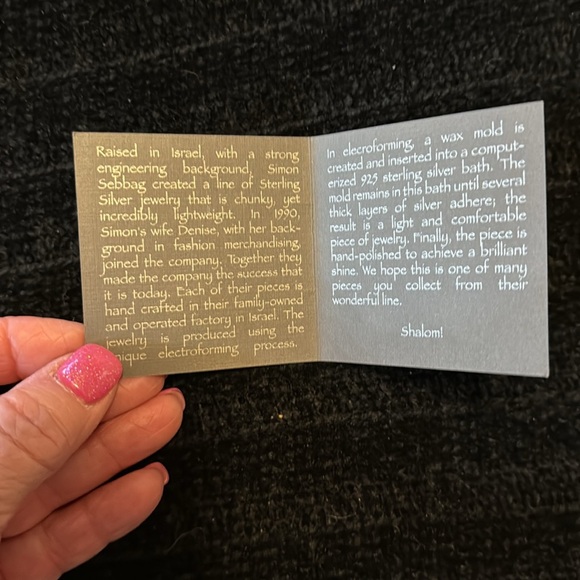 Raised in Israel, with a strong
engineering background, Simon
Sebbag created a line of Sterling
Silver jewelry that is chunky, yet
incredibly lightweight. In 1990,
Simon's wife Denise, with her back-
ground in fashion merchandising,
joined the company. Together they
made the company the success that
it is today. Each of their pieces is
hand crafted in their family-owned
and operated factory in Israel. The
jewelry is produced using the
unique electroforming process.
In elecroforming, a wax mold is
created and inserted into a comput-
erized 925 sterling silver bath. The
mold remains in this bath until several
thick layers of silver adhere; the
result is a light and comfortable
piece of jewelry. Finally, the piece is
hand-polished to achieve a brilliant
shine. We hope this is one of many
pieces you collect from their
wonderful line.
Shalom!